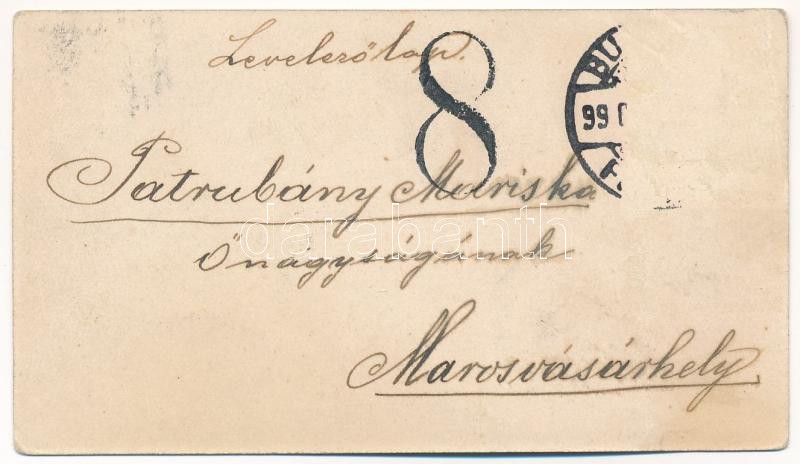 Levelezőlap.
8
BU
99
Patrubány Mariska
Őnagyságának
darabanth
Marosvásárhely